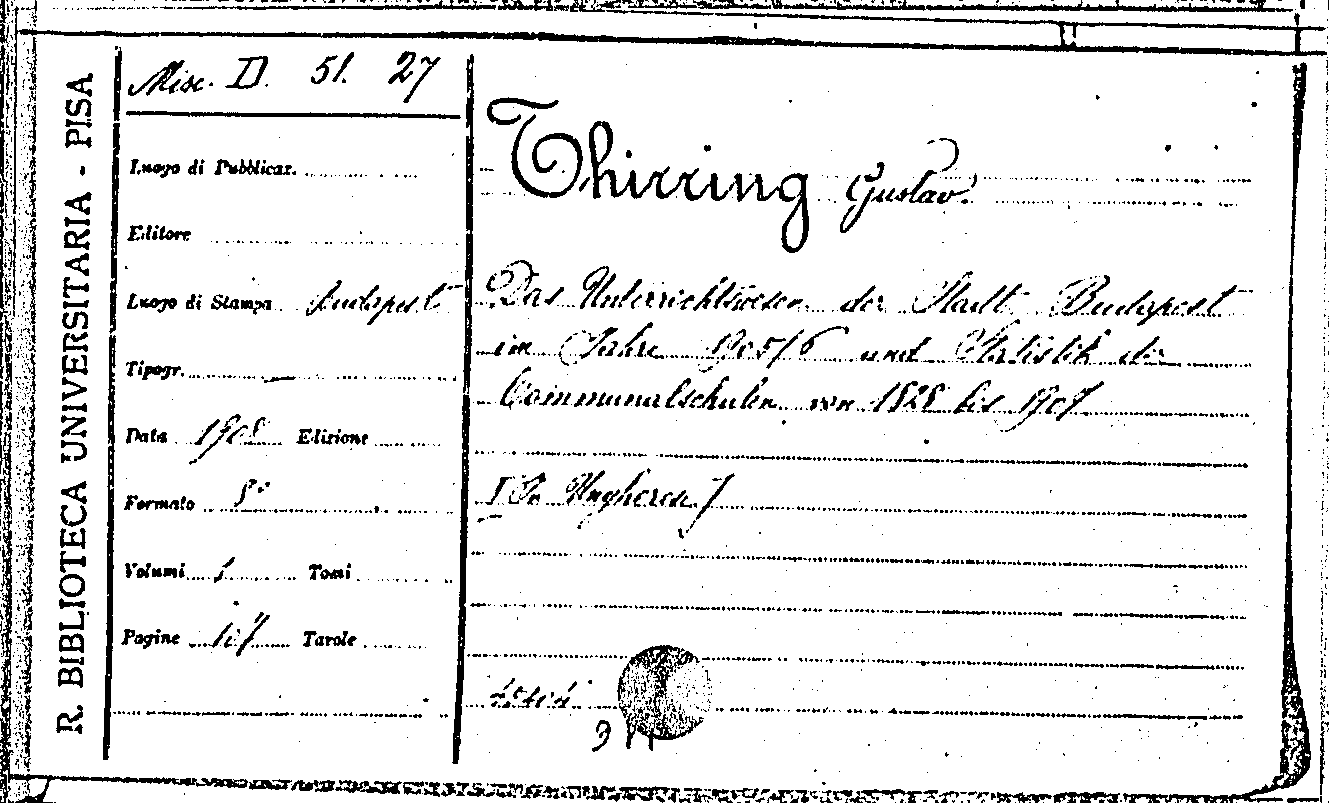 R. BIBLIOTECA UNIVERSITARIA - PISA
Misc. D. 51. 27
Luogo di Pubblicaz.
Editore
Luogo di Stampa Budapest
Tipogr.
Data 1908 Edizione
Formato 8°
Volumi 1 Tomi
Pagine 107 Tavole
Thirring Gustav.
Das Unterrichtswesen der Stadt Budapest
im Jahre 1905/6 und Statistik der
Communalschulen von 1828 bis 1907
[In Ungherese]